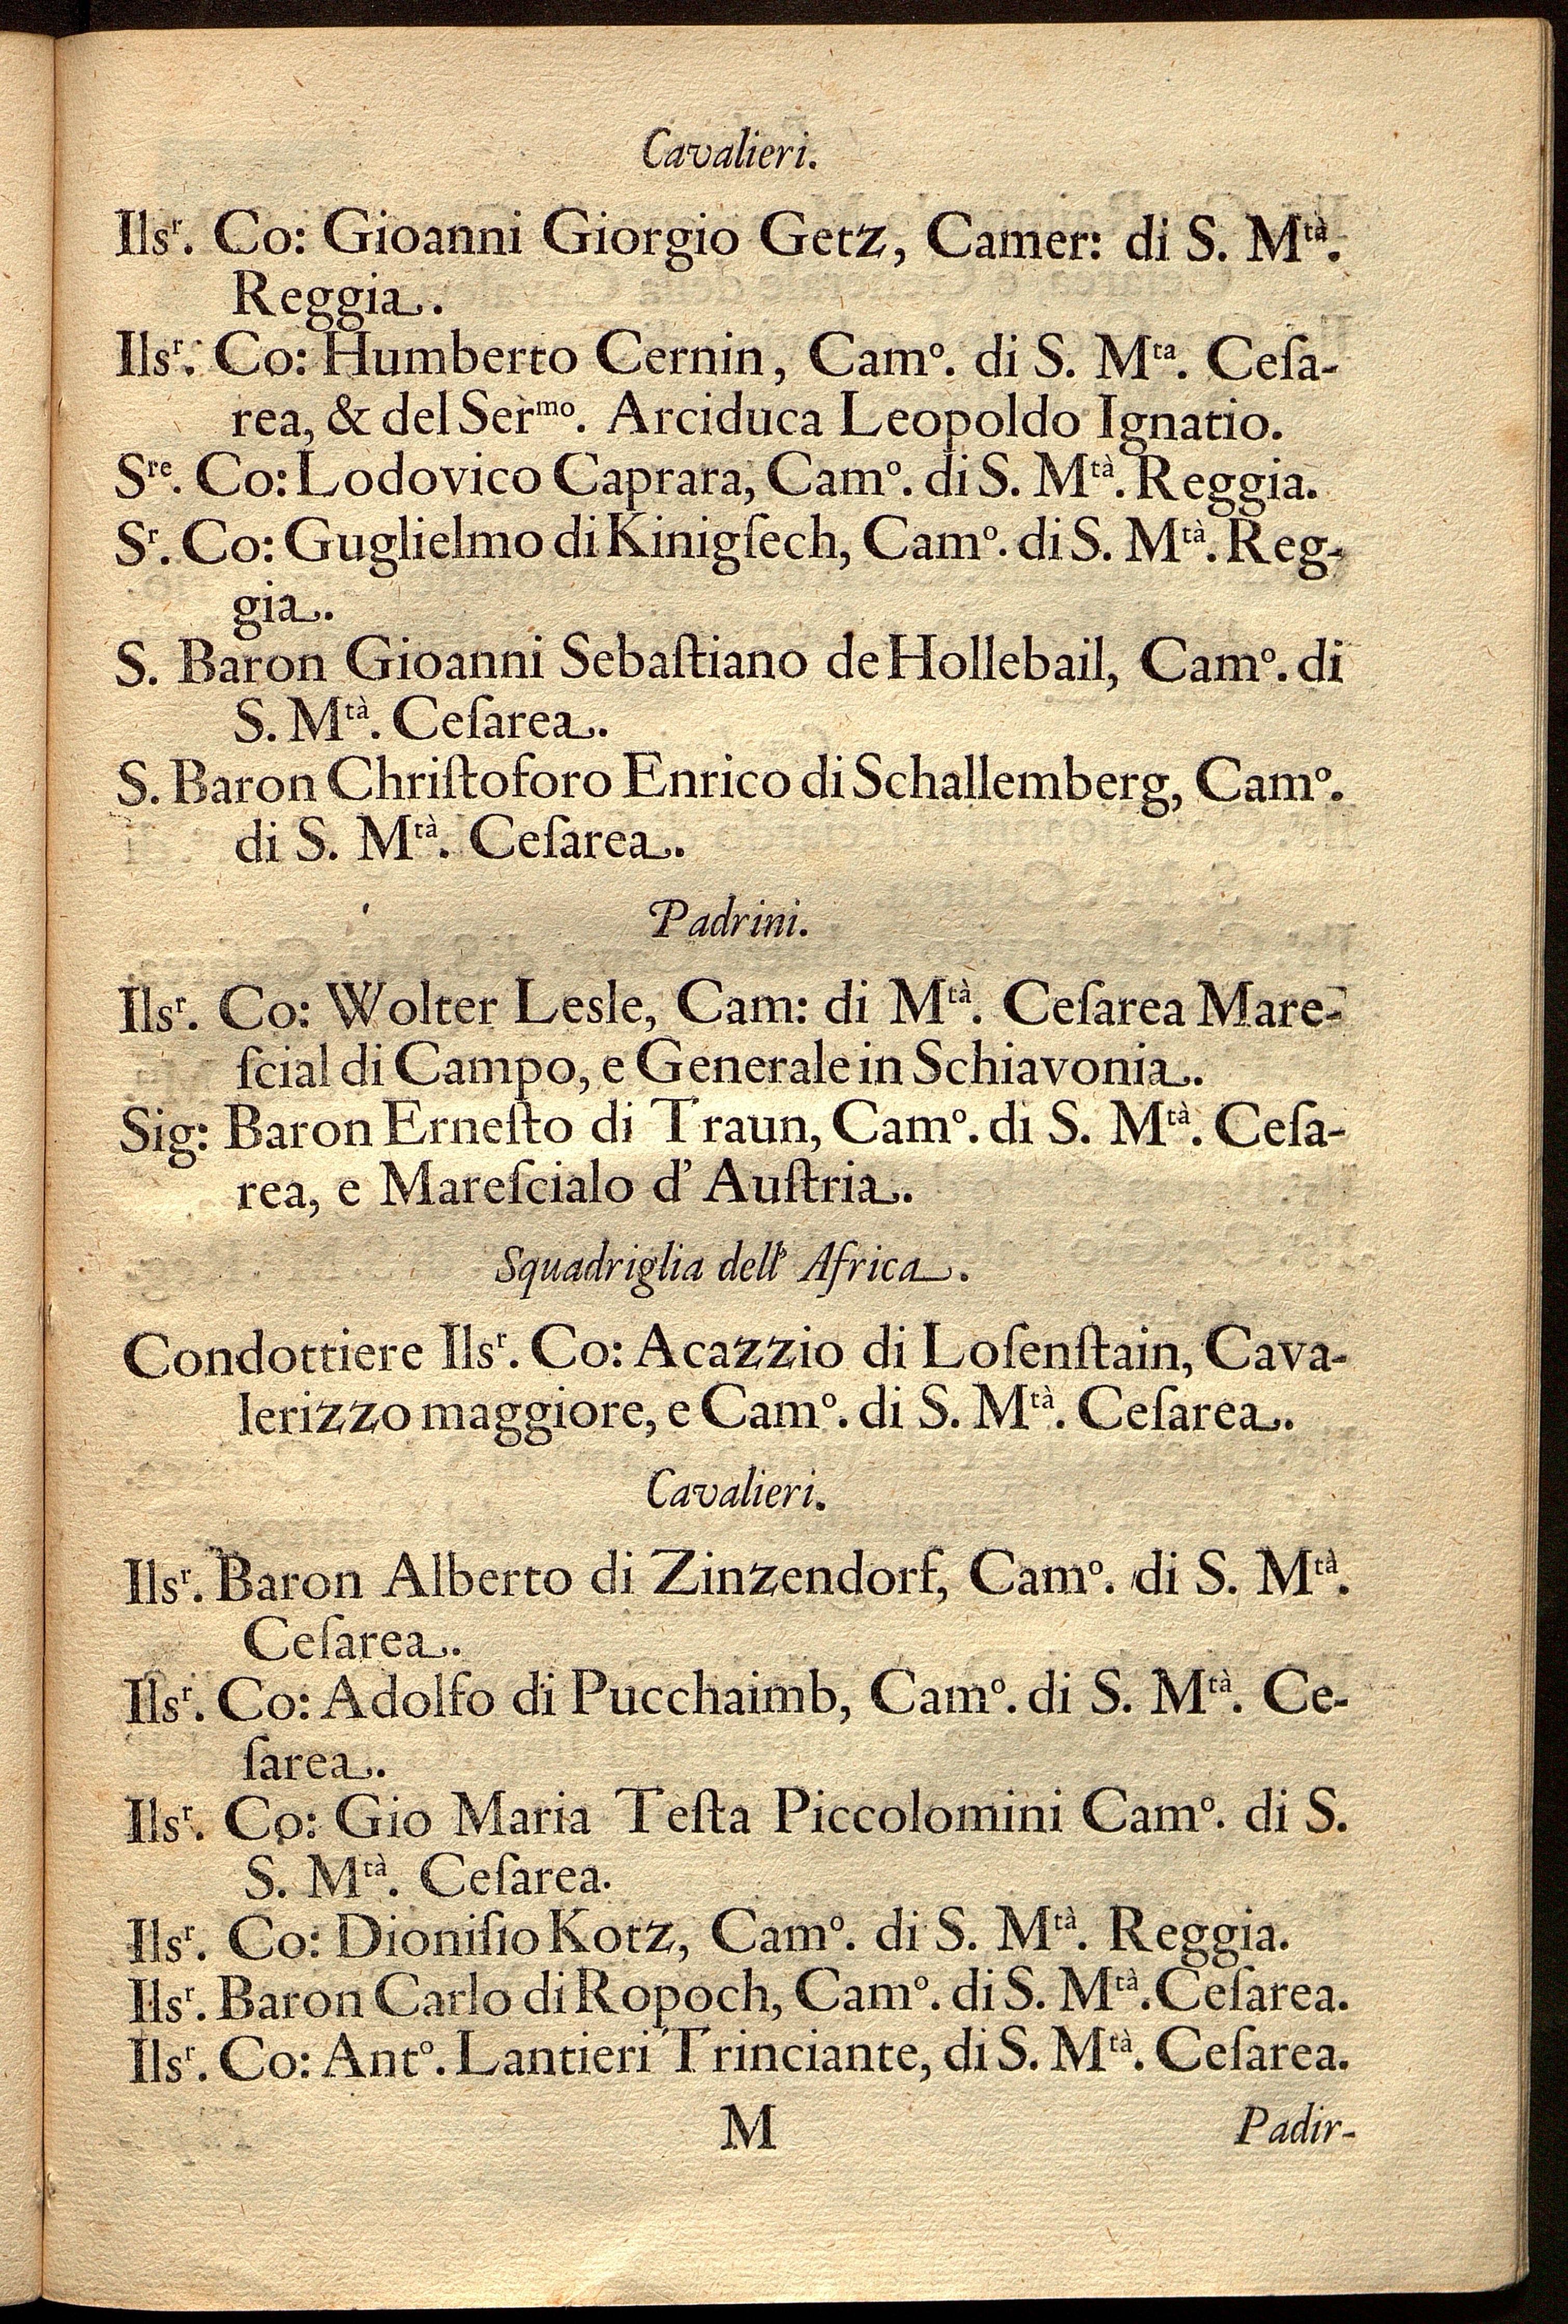 Cavalieri.
Ilsʳ. Co: Gioanni Giorgio Getz, Camer: di S. Mᵗᵃ̀.
Reggia.
Ilsʳ. Co: Humberto Cernin, Camº. di S. Mᵗᵃ. Ceſa-
rea, & del Serᵐᵒ. Arciduca Leopoldo Ignatio.
Sʳᵉ. Co: Lodovico Caprara, Camº. di S. Mᵗᵃ̀. Reggia.
Sʳ. Co: Guglielmo di Kinigſech, Camº. di S. Mᵗᵃ̀. Reg-
gia.
S. Baron Gioanni Sebaſtiano de Hollebail, Camº. di
S. Mᵗᵃ̀. Ceſarea.
S. Baron Chriſtoforo Enrico di Schallemberg, Camº.
di S. Mᵗᵃ̀. Ceſarea.
Padrini.
Ilsʳ. Co: Wolter Lesle, Cam: di Mᵗᵃ̀. Ceſarea Mare-
ſcial di Campo, e Generale in Schiavonia.
Sig: Baron Erneſto di Traun, Camº. di S. Mᵗᵃ̀. Ceſa-
rea, e Mareſcialo d' Auſtria.
Squadriglia dell' Africa.
Condottiere Ilsʳ. Co: Acazzio di Loſenſtain, Cava-
lerizzo maggiore, e Camº. di S. Mᵗᵃ̀. Ceſarea.
Cavalieri.
Ilsʳ. Baron Alberto di Zinzendorf, Camº. di S. Mᵗᵃ̀.
Ceſarea.
Ilsʳ. Co: Adolfo di Pucchaimb, Camº. di S. Mᵗᵃ̀. Ce-
ſarea.
Ilsʳ. Co: Gio Maria Teſta Piccolomini Camº. di S.
S. Mᵗᵃ̀. Ceſarea.
Ilsʳ. Co: Dioniſio Kotz, Camº. di S. Mᵗᵃ̀. Reggia.
Ilsʳ. Baron Carlo di Ropoch, Camº. di S. Mᵗᵃ̀. Ceſarea.
Ilsʳ. Co: Antº. Lantieri Trinciante, di S. Mᵗᵃ̀. Ceſarea.
M Padir-